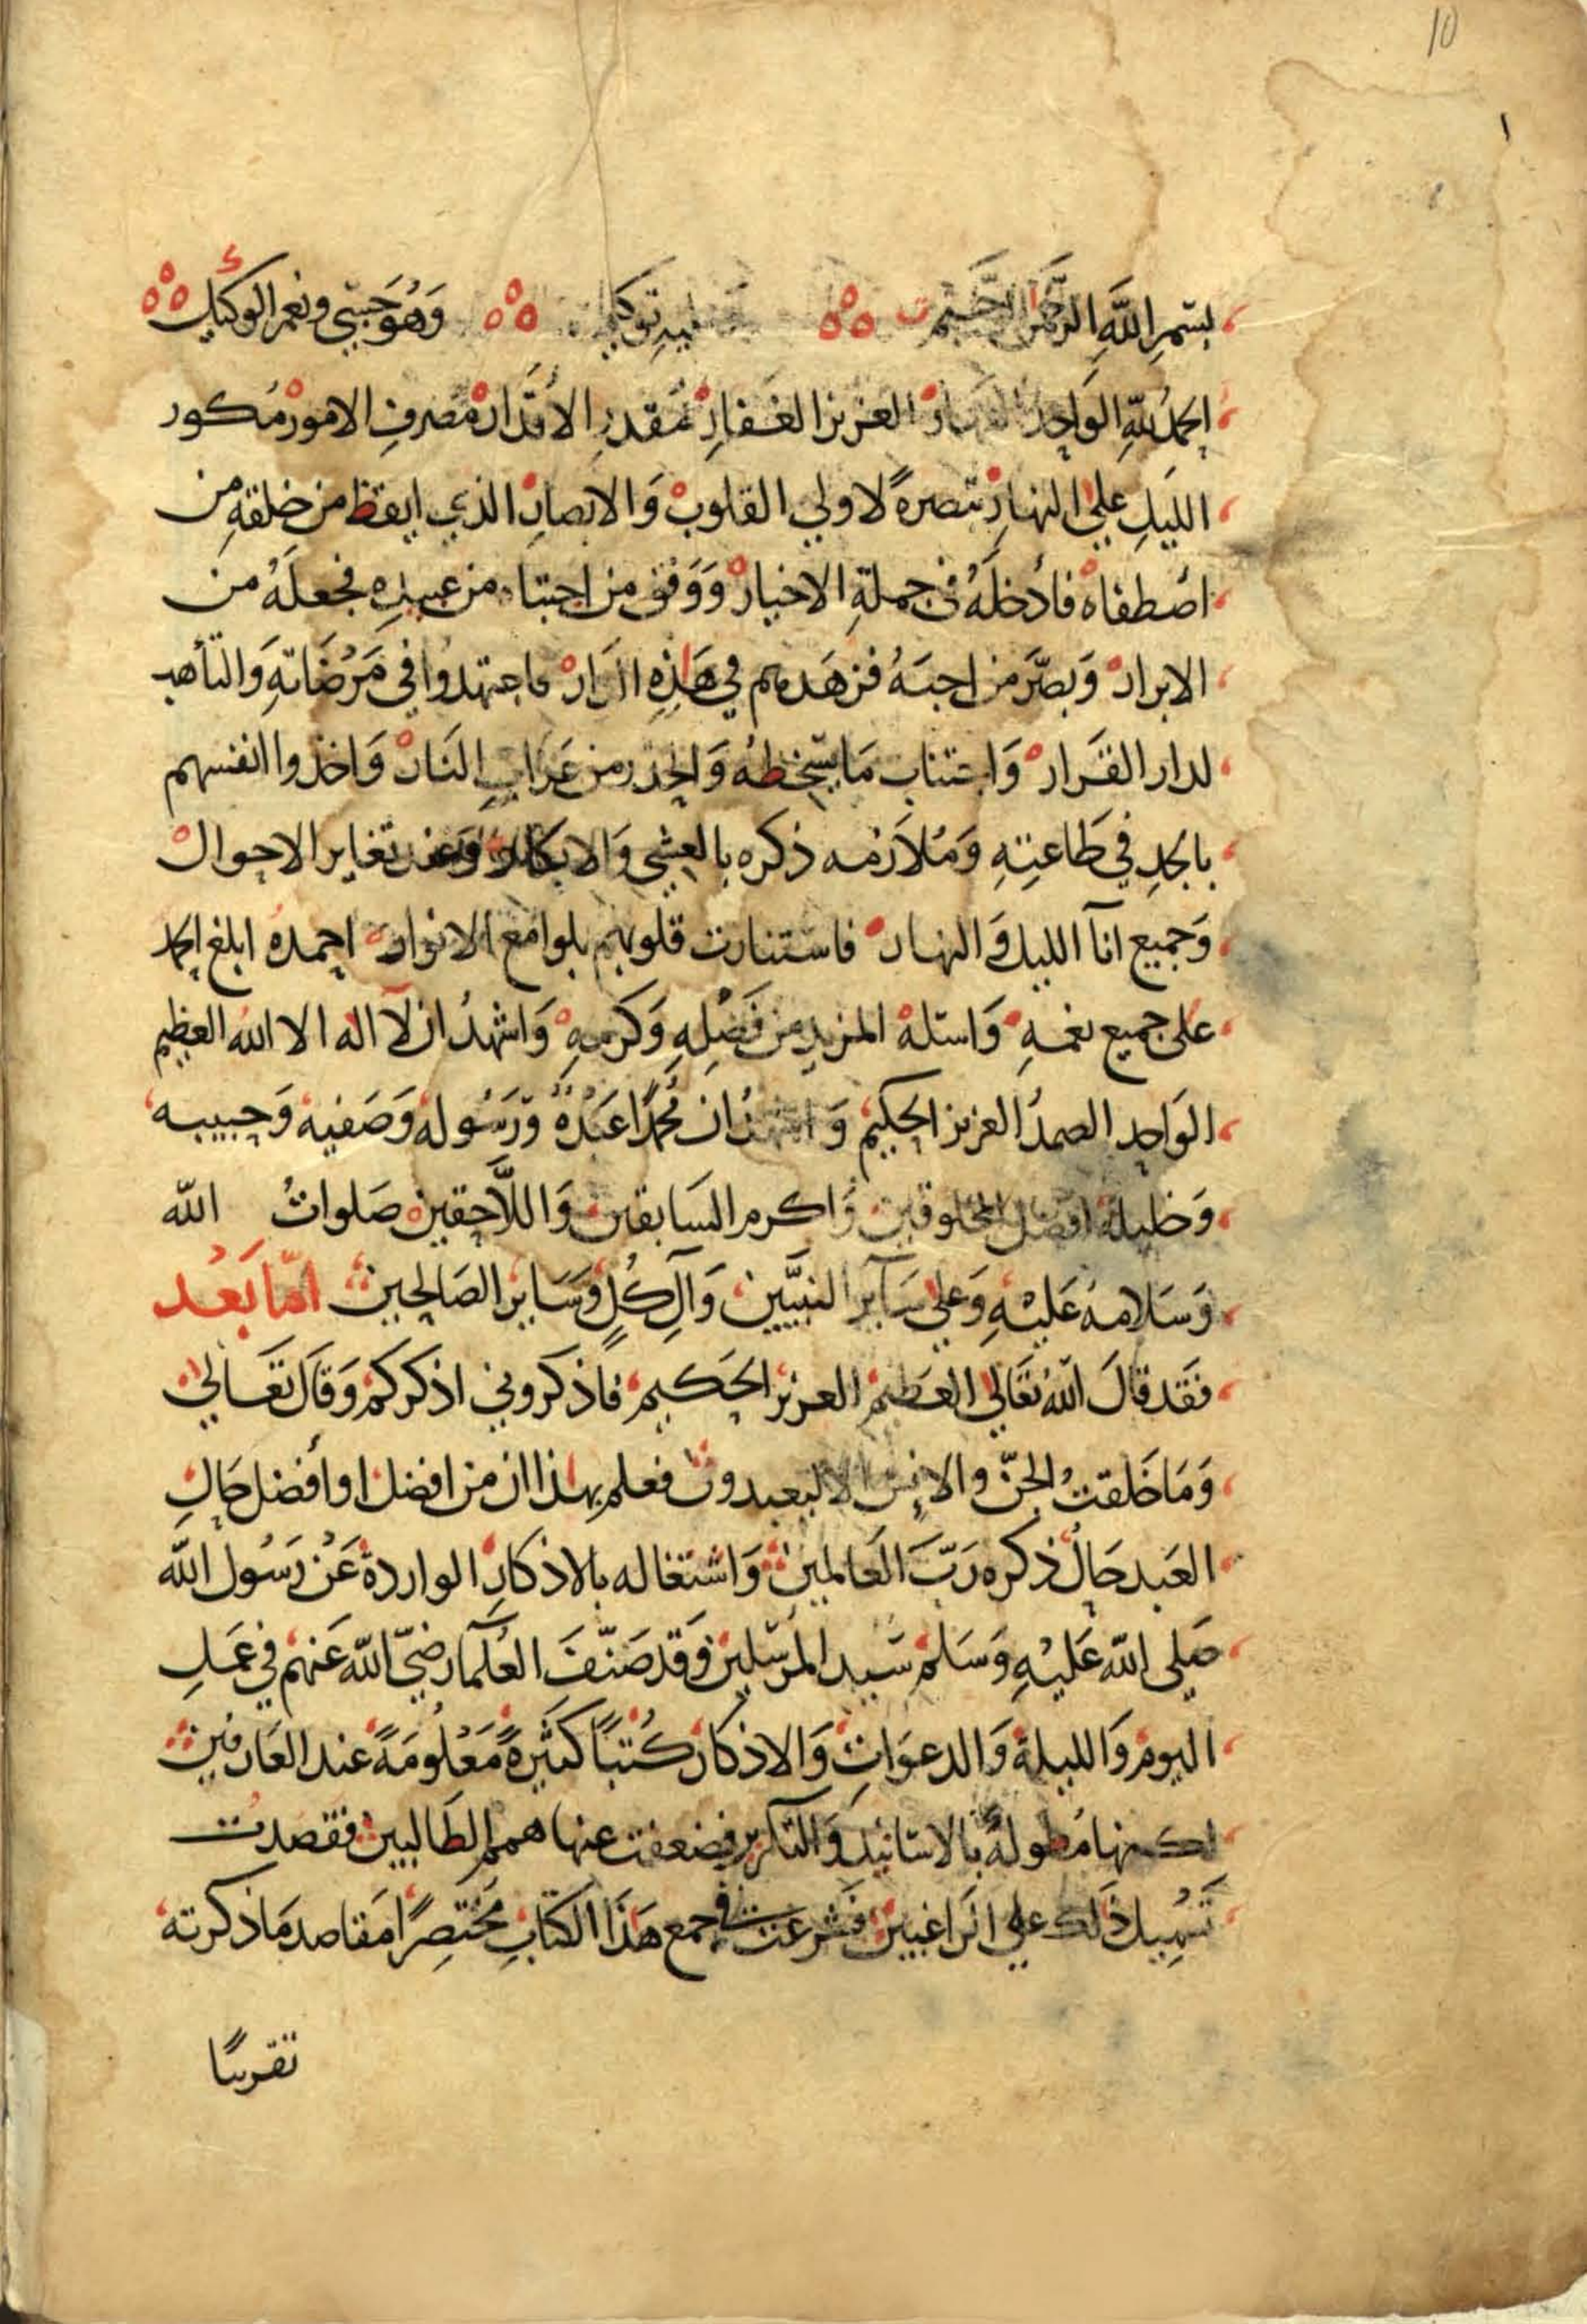 10
١
بسم الله الرحمن الرحيم توكلي وهو حسبي ونعم الوكيل
الحمد لله الواحد القهار العزيز الغفار مقدر الاقدار مصرف الامور مكور
الليل على النهار تبصرة لاولي القلوب والابصار الذي ايقظ من خلقه من
اصطفاه فادخله في جملة الاخيار ووفق من اجتباه من عبيده فجعله من
الابرار وبصر من احبه فزهدهم في هذه الدار فاجتهدوا في مرضاته والتأهب
لدار القرار واجتناب ما يسخطه والحذر من عذاب النار واخذوا انفسهم
بالجد في طاعته وملازمه ذكره بالعشي والابكار وعند تغاير الاحوال
وجميع انآ الليل والنهار فاستنارت قلوبهم بلوامع الانوار احمده ابلغ الحمد
على جميع نعمه واسئله المزيد من فضله وكرمه واشهد ان لآ اله الا الله العظيم
الواحد الصمد العزيز الحكيم واشهد ان محمدا عبده ورسوله وصفيه وحبيبه
وخليله افضل المخلوقين واكرم السابقين واللاحقين صلوات الله
وسلامه عليه وعلى سآير النبيين وآل كل وساير الصالحين اما بعد
فقد قال الله تعالى العظيم العزيز الحكيم فاذكروني اذكركم وقال تعالى
وما خلقت الجن والانس الا ليعبدون فعلم بهذا ان من افضل او افضل حال
العبد حال ذكره رب العالمين واشتغاله بالاذكار الواردة عن رسول الله
صلى الله عليه وسلم سيد المرسلين وقد صنف العلمآ رضي الله عنهم في عمل
اليوم والليلة والدعوات والاذكار كتبا كثيرة معلومة عند العارفين
لكنها مطولة بالاسانيد والتكرير فضعفت عنها همم الطالبين فقصدت
تسهيل ذلك على الراغبين فشرعت في جمع هذا الكتاب مختصرا مقاصد ما ذكرته
تقريبا